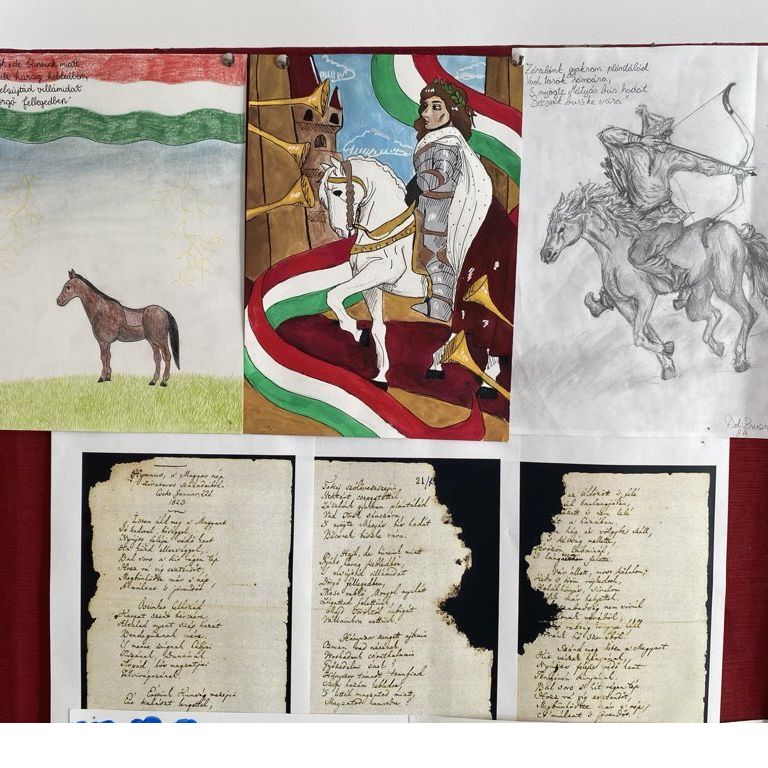 de bűneink miatt
harag kebledben,
villámidat
fellegedben"
Zászlónk gyakran plántálád
Vad török sáncára,
S nyögte Mátyás bús hadát
Bécsnek büszke vára"
8.A
Hymnus, a Magyar nép
zivataros századaiból.
Cseke, Januar. 22d.
1823
Isten áldd meg a Magyart
Jó kedvvel, bőséggel,
Nyújts feléje védő kart
Ha küzd ellenséggel;
Bal sors a kit régen tép
Hozz rá víg esztendőt,
Megbűnhödte már e nép
A' multat 's jövendőt!
Őseinket felhozád
Kárpát szent bérczére,
Általad nyert szép hazát
Bendegúznak vére,
'S merre zúgnak habjai
Tiszának, Dunának,
Árpád hős magzatjai
Felvirágozának.
Értünk Kunság mezein
Ért kalászt lengettél,
21/
Tokaj szőlővesszein
Nektárt csepegtettél.
Zászlónk gyakran plántálád
Vad Török sánczára,
'S nyögte Mátyás bús hadát
Bécsnek büszke vára.
Hajh, de bűneink miatt
Gyúlt harag kebledben,
'S elsújtád villámidat
Dörgő fellegedben,
Most rabló Mongol nyilát
Zúgattad felettünk,
Majd Töröktől rabigát
Vállainkra vettünk.
Hányszor zengett ajkain
Ozman vad népének
Vert hadunk csonthalmain
Győzedelmi ének!
Hányszor támadt tenfiad
Szép hazám kebledre,
'S lettél magzatod miatt,
Magzatod hamvvedre?
az üldözött 's felé
barlangjában,
's nem lelé
a hazában,
és völgybe száll,
's kétség mellette,
lábainál,
felette.
Vár állott, most kőhalom,
Kedv 's öröm röpkedtek,
Halálhörgés, siralom
már helyettek.
szabadság nem virúl
véréből,
rabság könnye hull
hő szeméből!
Szánd meg Isten a Magyart
Kit vészek hányának,
Nyújts feléje védő kart
Tengerén kínjának.
Bal sors a kit régen tép
Hozz rá víg esztendőt,
Megbűnhödte már e nép
A' multat 's jövendőt!